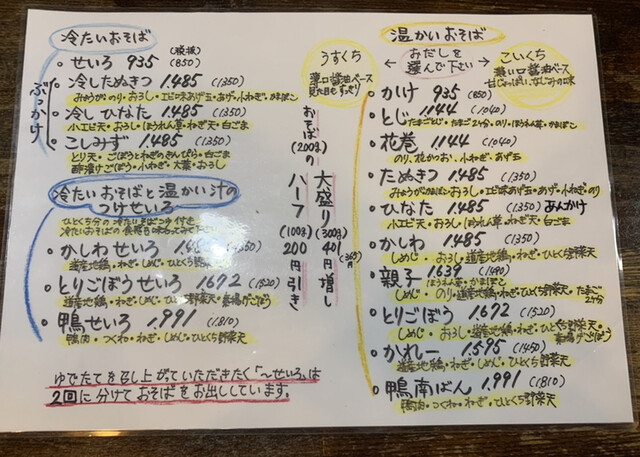 冷たいおそば
(税抜)
・せいろ 935 (850)
ぶっかけ
・冷したぬきつ 1.485 (1350)
みょうが・のり・おろし・エビ味あげ玉・あげ・小ねぎ・かまぼこ
・冷しひなた 1.485 (1350)
小エビ天・おろし・ほうれん草・ねぎ天・白ごま
・こしみず 1.485 (1350)
とり天・ごぼうとねぎのきんぴら・白ごま
酢漬けごぼう・小ねぎ・大葉・おろし
冷たいおそばと温かい汁の
つけせいろ
ひとくち分の冷たいまぜつゆ付き
・かしわせいろ 1.485 (1350)
道産地鶏・ねぎ・しめじ・ひとくち野菜天
・とりごぼうせいろ 1.672 (1520)
道産地鶏・ねぎ・しめじ・ひとくち野菜天・素揚げごぼう
・鴨せいろ 1.991 (1.810)
鴨肉・つくね・ねぎ・ひとくち野菜天
ゆでたてを召し上がっていただきたく「〜せいろ」は
2回に分けておそばをお出ししています。
おそば(200g)の
大盛り(300g) 401円増し (365円)
ハーフ(100g) 200円引き
温かいおそば
うすくち
薄口醤油ベース
見た目もすっきり
← おだしを →
選んで下さい
こいくち
濃い口醤油ベース
甘じょっぱい、なじみの味
・かけ 935 (850)
・とじ 1144 (1040)
たまごとじ・たまご2ケ分・のり・ほうれん草・かまぼこ
・花巻 1144 (1040)
のり、花かつお、小ねぎ・あげ玉
・たぬきつ 1.485 (1350)
みょうが・かまぼこ・おろし・エビ味あげ玉・あげ・小ねぎ・のり
・ひなた 1.485 (1350) あんかけ
小エビ天・おろし・ほうれん草・ねぎ天・白ごま
・かしわ 1.485 (1350)
しめじ・おろし・道産地鶏・ねぎ・ひとくち野菜天
・親子 1.639 (1490)
ほうれん草・かまぼこ
しめじ・のり・道産地鶏・ねぎ・ひとくち野菜天・たまご2ケ分
・とりごぼう 1.672 (1520)
しめじ・おろし・道産地鶏・ねぎ・ひとくち野菜天・素揚げごぼう
・かれー 1.595 (1450)
道産地鶏・ねぎ・しめじ・ひとくち野菜天
・鴨南ばん 1.991 (1.810)
鴨肉・つくね・ねぎ・ひとくち野菜天